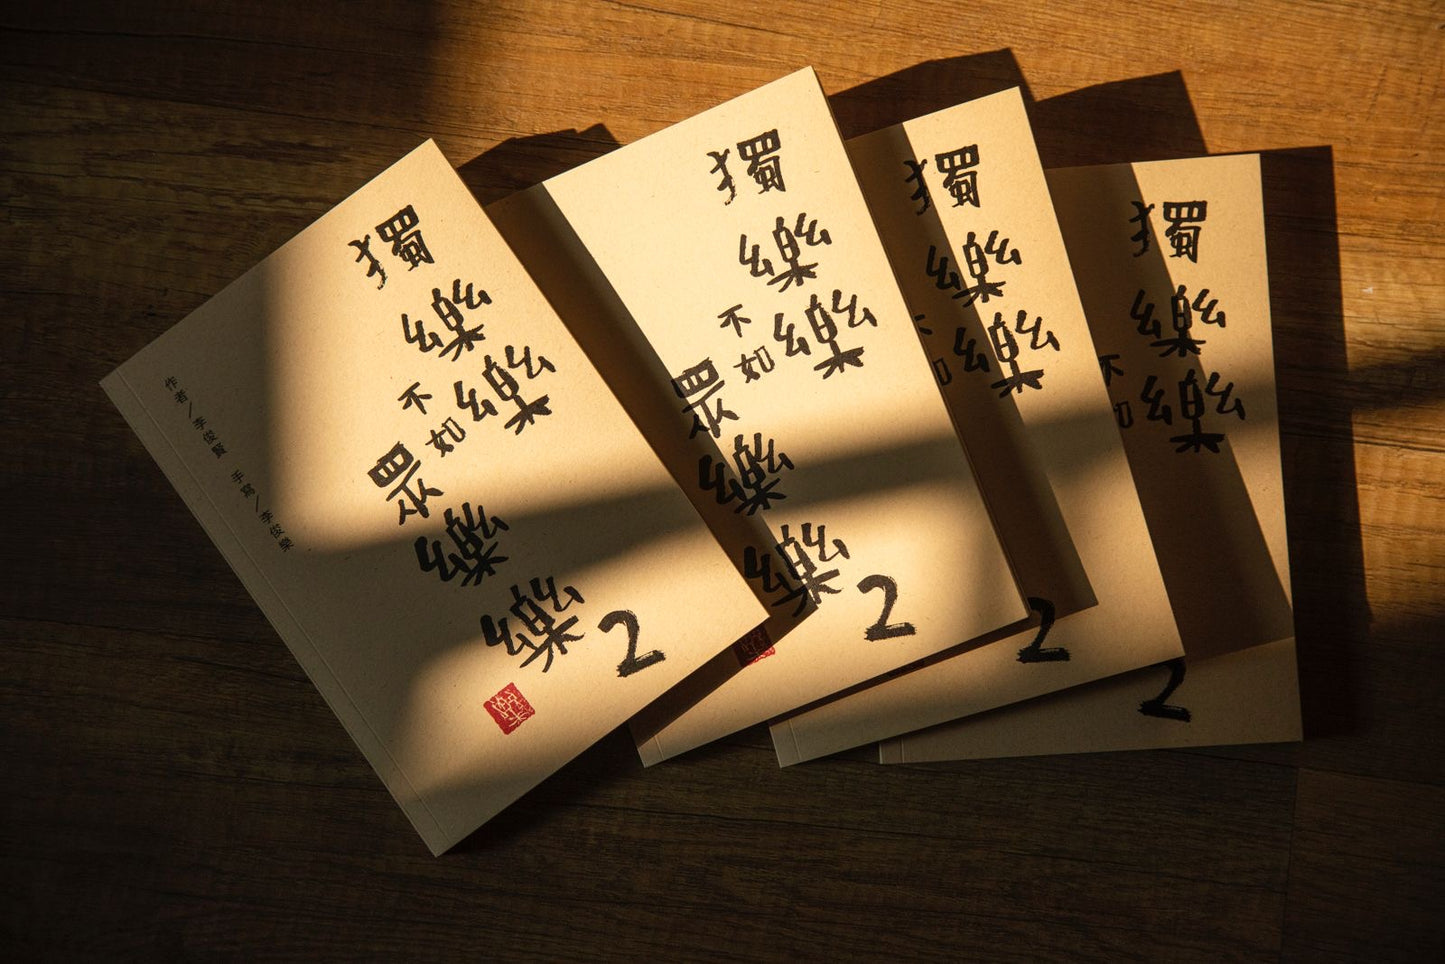 獨樂樂
不如
眾樂樂
2
作者/李俊賢 手寫/李俊樂
獨樂樂
不如
眾樂樂
2
獨樂樂
2
獨樂樂
2